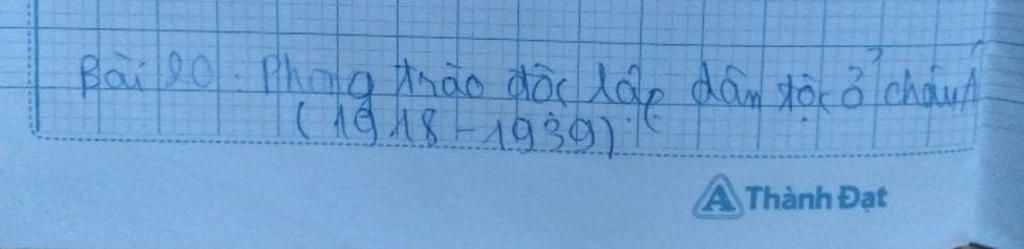 Bài 20. Phong trào độc lập dân tộc ở châu Á
(1918-1939)
Thành Đạt